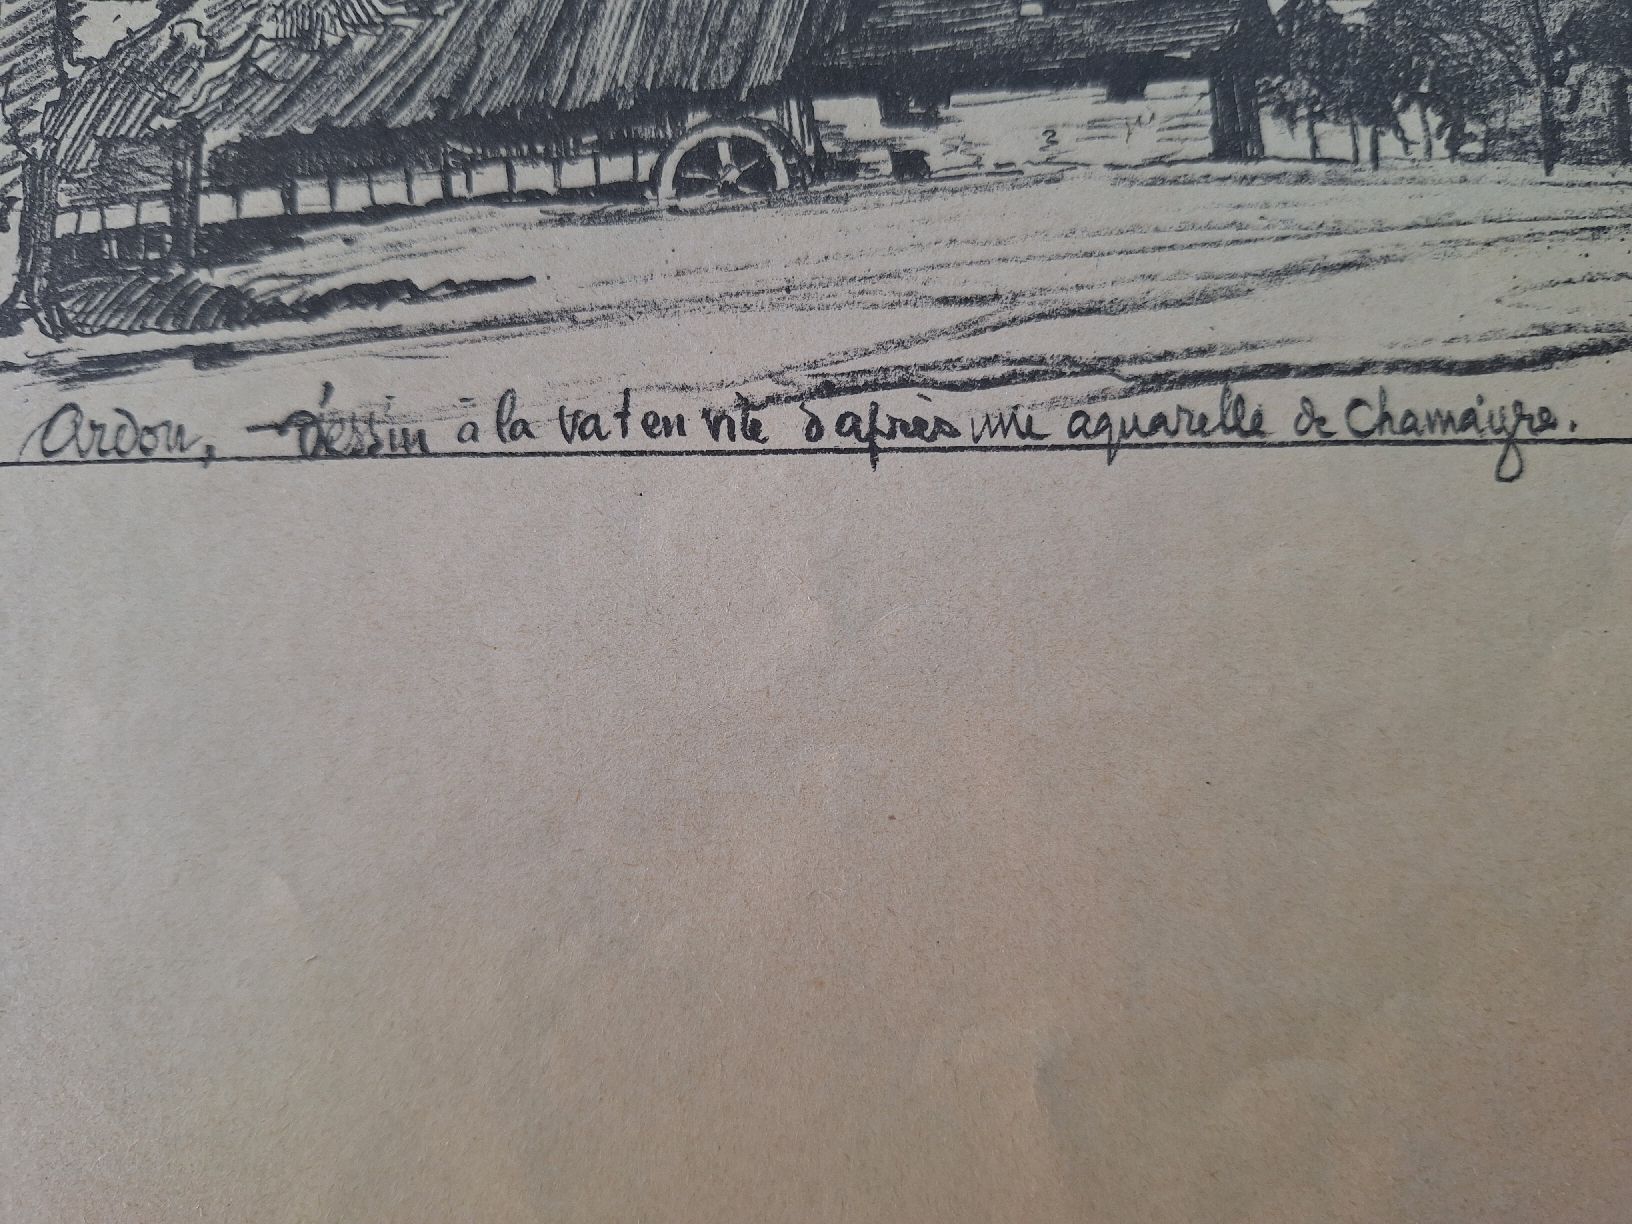 Ardon, - déssin à la vat en vite d'après une aquarelle de Chamáyre.